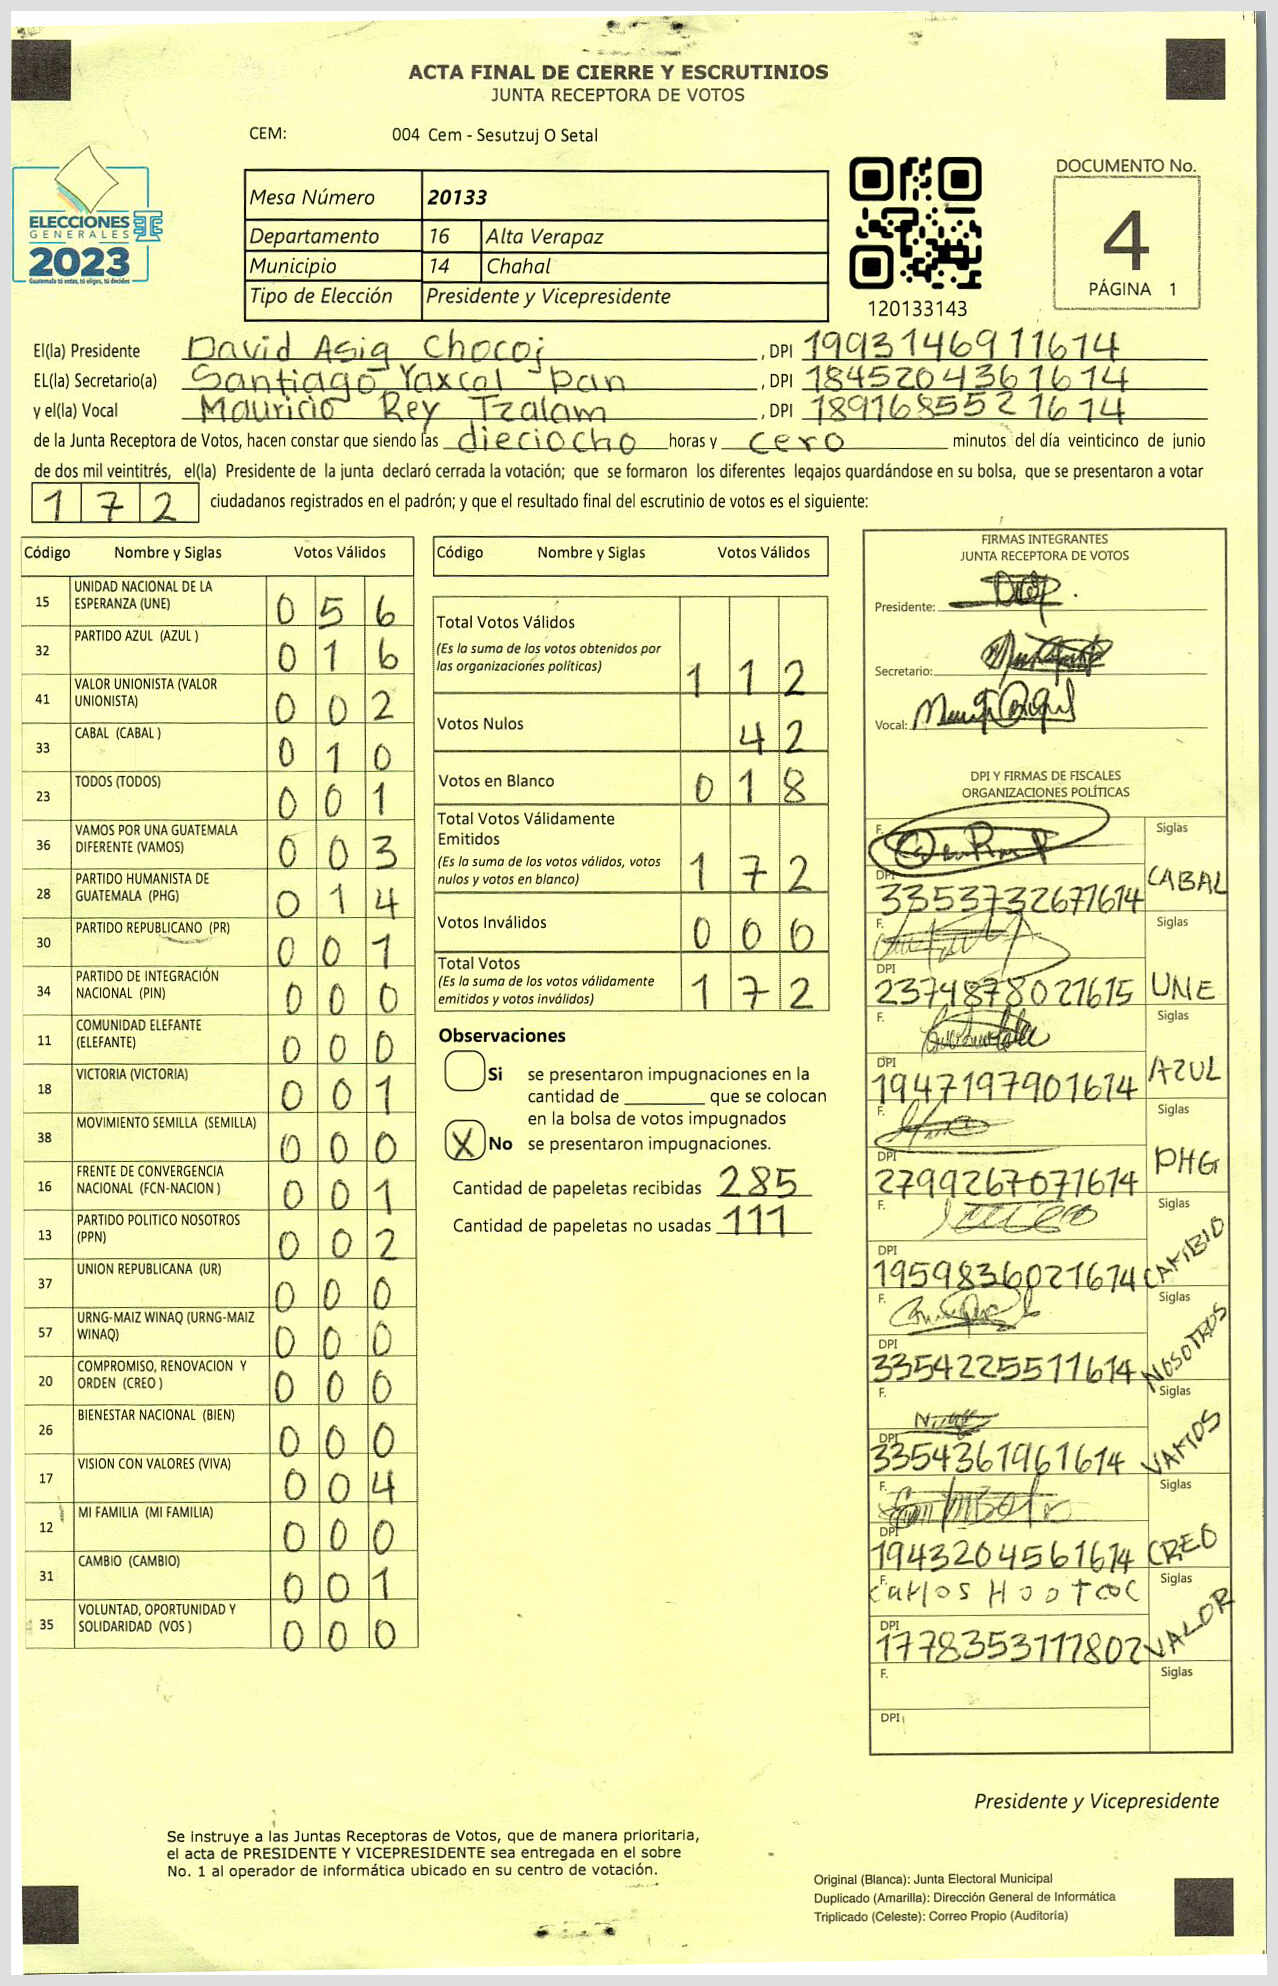 ACTA FINAL DE CIERRE Y ESCRUTINIOS
JUNTA RECEPTORA DE VOTOS
CEM: 004 Cem - Sesutzuj O Setal
ELECCIONES
GENERALES
2023
Guatemala tú votas, tú eliges, tú decides
Mesa Número 20133
Departamento 16 Alta Verapaz
Municipio 14 Chahal
Tipo de Elección Presidente y Vicepresidente
120133143
DOCUMENTO No.
4
PÁGINA 1
El(la) Presidente David Asig Chocoj, DPI 1993146911614
EL(la) Secretario(a) Santiago Yaxcal Pan, DPI 1845204361614
y el(la) Vocal Mauricio Rey Tzalam, DPI 1891685521614
de la Junta Receptora de Votos, hacen constar que siendo las dieciocho horas y cero minutos del día veinticinco de junio
de dos mil veintitrés, el(la) Presidente de la junta declaró cerrada la votación; que se formaron los diferentes legajos quardándose en su bolsa, que se presentaron a votar
172 ciudadanos registrados en el padrón; y que el resultado final del escrutinio de votos es el siguiente:
Código Nombre y Siglas Votos Válidos
15 UNIDAD NACIONAL DE LA ESPERANZA (UNE) 056
32 PARTIDO AZUL (AZUL ) 016
41 VALOR UNIONISTA (VALOR UNIONISTA) 002
33 CABAL (CABAL ) 010
23 TODOS (TODOS) 001
36 VAMOS POR UNA GUATEMALA DIFERENTE (VAMOS) 003
28 PARTIDO HUMANISTA DE GUATEMALA (PHG) 014
30 PARTIDO REPUBLICANO (PR) 001
34 PARTIDO DE INTEGRACIÓN NACIONAL (PIN) 000
11 COMUNIDAD ELEFANTE (ELEFANTE) 000
18 VICTORIA (VICTORIA) 001
38 MOVIMIENTO SEMILLA (SEMILLA) 000
16 FRENTE DE CONVERGENCIA NACIONAL (FCN-NACION ) 001
13 PARTIDO POLITICO NOSOTROS (PPN) 002
37 UNION REPUBLICANA (UR) 000
57 URNG-MAIZ WINAQ (URNG-MAIZ WINAQ) 000
20 COMPROMISO, RENOVACION Y ORDEN (CREO ) 000
26 BIENESTAR NACIONAL (BIEN) 000
17 VISION CON VALORES (VIVA) 004
12 MI FAMILIA (MI FAMILIA) 000
31 CAMBIO (CAMBIO) 001
35 VOLUNTAD, OPORTUNIDAD Y SOLIDARIDAD (VOS ) 000
Código Nombre y Siglas Votos Válidos
Total Votos Válidos 112
(Es la suma de los votos obtenidos por las organizaciones políticas)
Votos Nulos 42
Votos en Blanco 018
Total Votos Válidamente Emitidos 172
(Es la suma de los votos válidos, votos nulos y votos en blanco)
Votos Inválidos 000
Total Votos 172
(Es la suma de los votos válidamente emitidos y votos inválidos)
Observaciones
Si se presentaron impugnaciones en la
cantidad de ________ que se colocan
en la bolsa de votos impugnados
X No se presentaron impugnaciones.
Cantidad de papeletas recibidas 285
Cantidad de papeletas no usadas 111
FIRMAS INTEGRANTES
JUNTA RECEPTORA DE VOTOS
Presidente:
Secretario:
Vocal:
DPI Y FIRMAS DE FISCALES
ORGANIZACIONES POLÍTICAS
F. Siglas
DPI 3353732671614 CABAL
F. Siglas
DPI 2374878021615 UNE
F. Siglas
DPI 1947197901614 AZUL
F. Siglas
DPI 2799267071614 PHG
F. Siglas
DPI 1959836021614 CAMBIO
F. Siglas
DPI 3354225511614 NOSOTROS
F. Siglas
DPI 3354361961614 VAMOS
F. Siglas
DPI 1943204561614 CREO
F. Carlos Hoo Tcoc Siglas
DPI 1778353111802 VALOR
F. Siglas
DPI
Presidente y Vicepresidente
Se instruye a las Juntas Receptoras de Votos, que de manera prioritaria,
el acta de PRESIDENTE Y VICEPRESIDENTE sea entregada en el sobre
No. 1 al operador de informática ubicado en su centro de votación.
Original (Blanca): Junta Electoral Municipal
Duplicado (Amarilla): Dirección General de Informática
Triplicado (Celeste): Correo Propio (Auditoría)